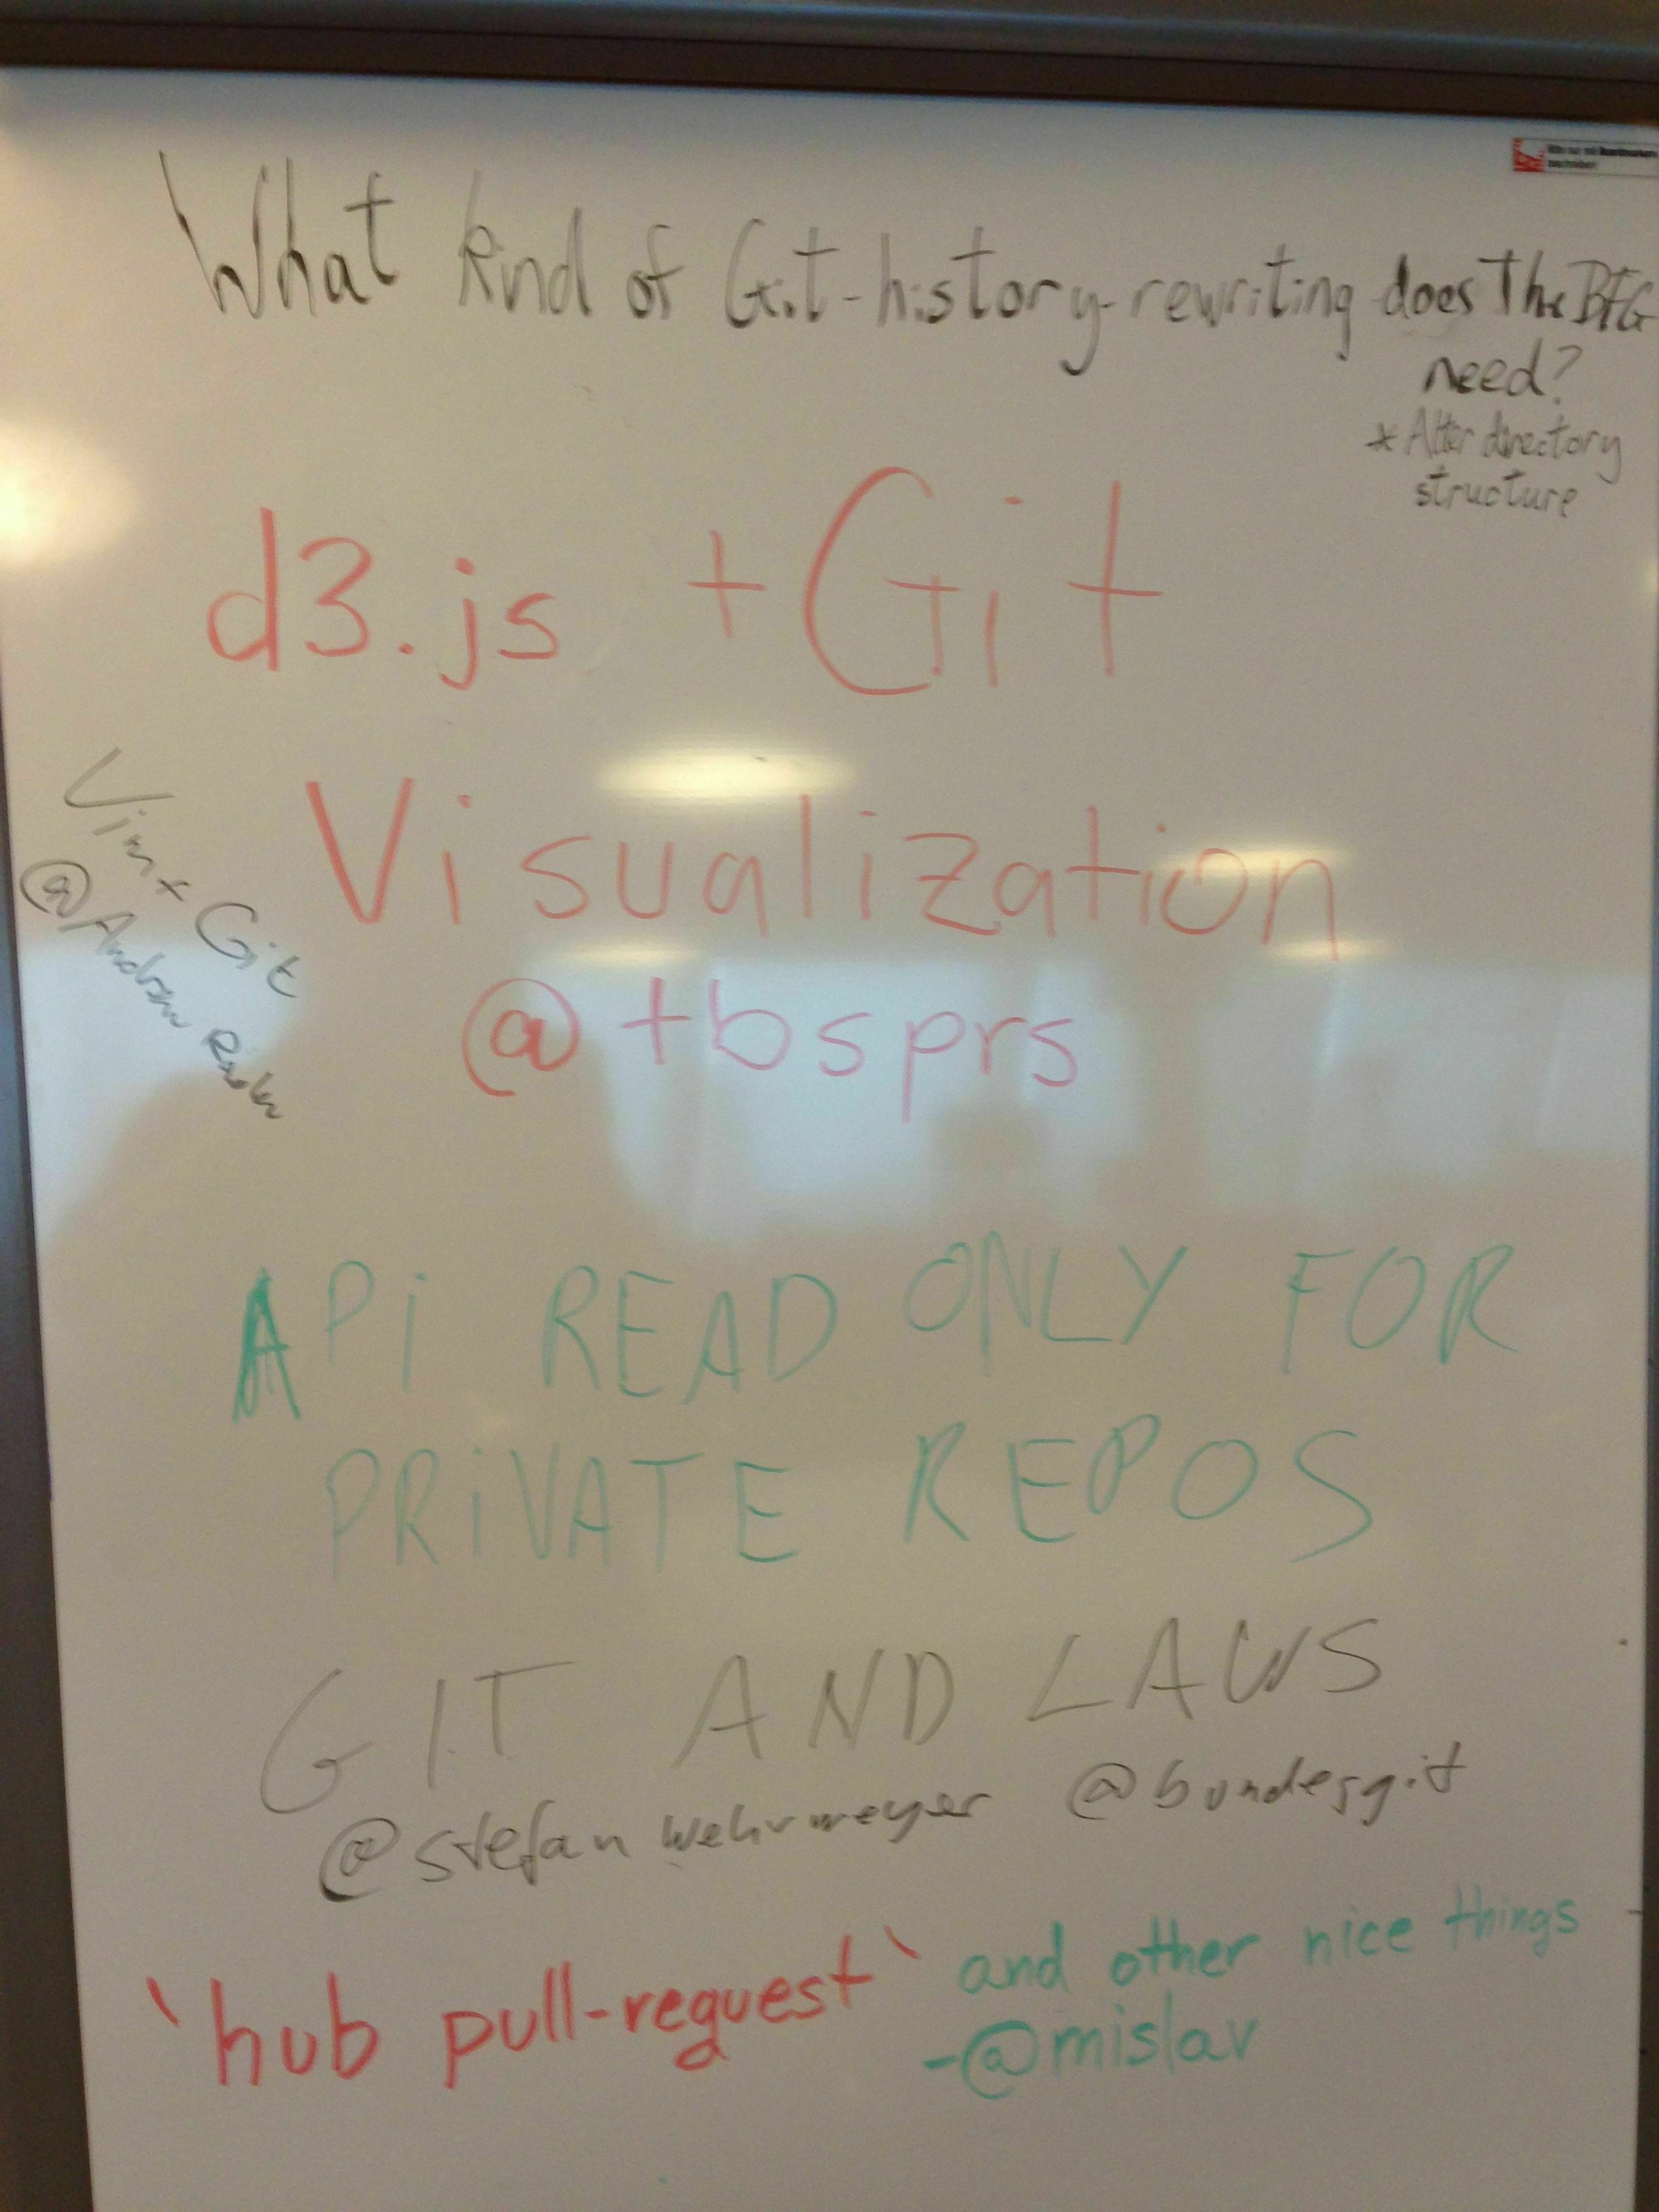 What kind of Git-history-rewriting does The BFG
need?
* Alter directory
structure
d3.js + Git
Visualization
@tbsprs
Vim + Git
@Andrew
APi READ ONLY FOR
PRiVATE REPOS
GIT AND LAWS
@stefanwehrmeyer @bundesgit
`hub pull-request` and other nice things
-@mislav